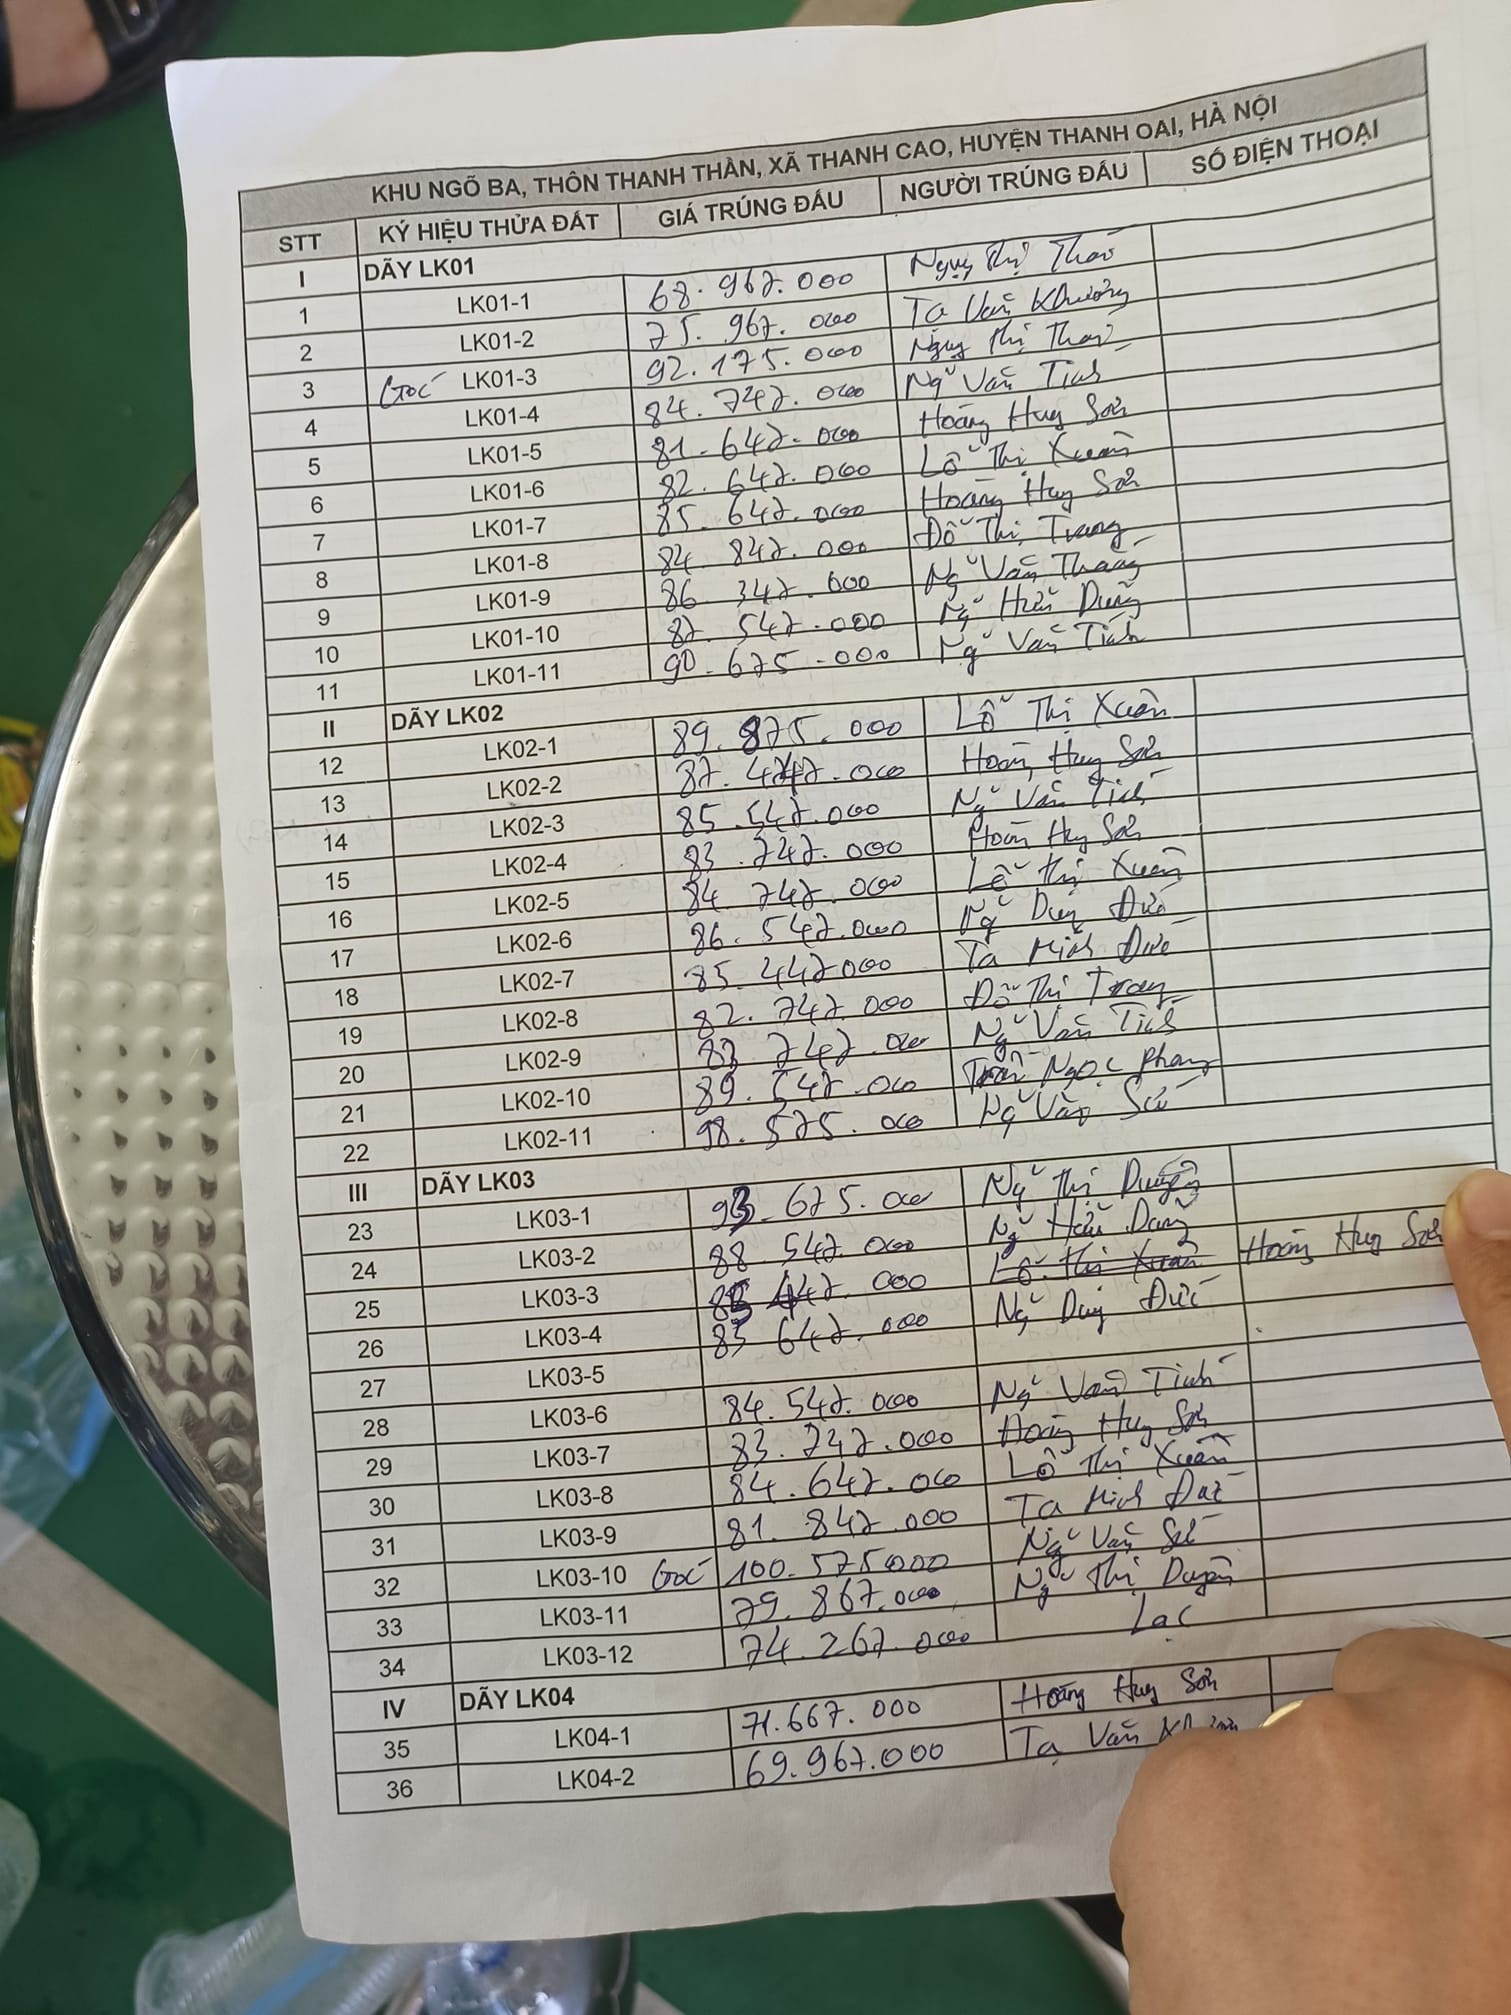 KHU NGÕ BA, THÔN THANH THẦN, XÃ THANH CAO, HUYỆN THANH OAI, HÀ NỘI
STT KÝ HIỆU THỬA ĐẤT GIÁ TRÚNG ĐẤU NGƯỜI TRÚNG ĐẤU SỐ ĐIỆN THOẠI
I DÃY LK01
1 LK01-1 68.967.000 Thị Thao
2 LK01-2 75.967.000 Tạ Văn Khương
3 Góc LK01-3 92.175.000 Thị Thao
4 LK01-4 84.747.000 Ng Văn Tính
5 LK01-5 81.647.000 Hoàng Huy Sơn
6 LK01-6 82.647.000 Lỗ Thị Xuân
7 LK01-7 85.647.000 Hoàng Huy Sơn
8 LK01-8 84.847.000 Đỗ Thị Trang
9 LK01-9 86.347.000 Ng Văn Thắng
10 LK01-10 87.547.000 Ng Hữu Dũng
11 LK01-11 90.675.000 Ng Văn Tính
II DÃY LK02
12 LK02-1 89.875.000 Lỗ Thị Xuân
13 LK02-2 87.447.000 Hoàng Huy Sơn
14 LK02-3 85.547.000 Ng Văn Tính
15 LK02-4 83.747.000 Hoàng Huy Sơn
16 LK02-5 84.747.000 Lỗ Thị Xuân
17 LK02-6 86.547.000 Ng Duy Đức
18 LK02-7 85.447000 Tạ Minh Đức
19 LK02-8 82.747.000 Đỗ Thị Trang
20 LK02-9 83.747.000 Ng Văn Tính
21 LK02-10 89.547.000 Trần Ngọc Phong
22 LK02-11 98.575.000 Ng Văn
III DÃY LK03
23 LK03-1 93.675.000 Ng Thị Duyên
24 LK03-2 88.547.000 Ng Hữu Dũng
25 LK03-3 447.000 Lỗ Thị Xuân Hoàng Huy Sơn
26 LK03-4 83.647.000 Ng Duy Đức
27 LK03-5
28 LK03-6 84.547.000 Ng Văn Tính
29 LK03-7 83.747.000 Hoàng Huy Sơn
30 LK03-8 84.647.000 Lỗ Thị Xuân
31 LK03-9 81.847.000 Tạ Minh Đức
32 LK03-10 Góc 100.575000 Ng Văn
33 LK03-11 79.867.000 Ng Thị Duyên
34 LK03-12 74.267.000 Lạc
IV DÃY LK04
35 LK04-1 71.667.000 Hoàng Huy Sơn
36 LK04-2 69.967.000 Tạ Văn